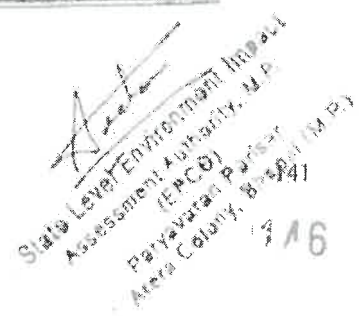 State Level Environment Impact
Assessment Authority, M.P.
(EPCO)
Paryavaran Parisar
Arera Colony, (M.P.)
141